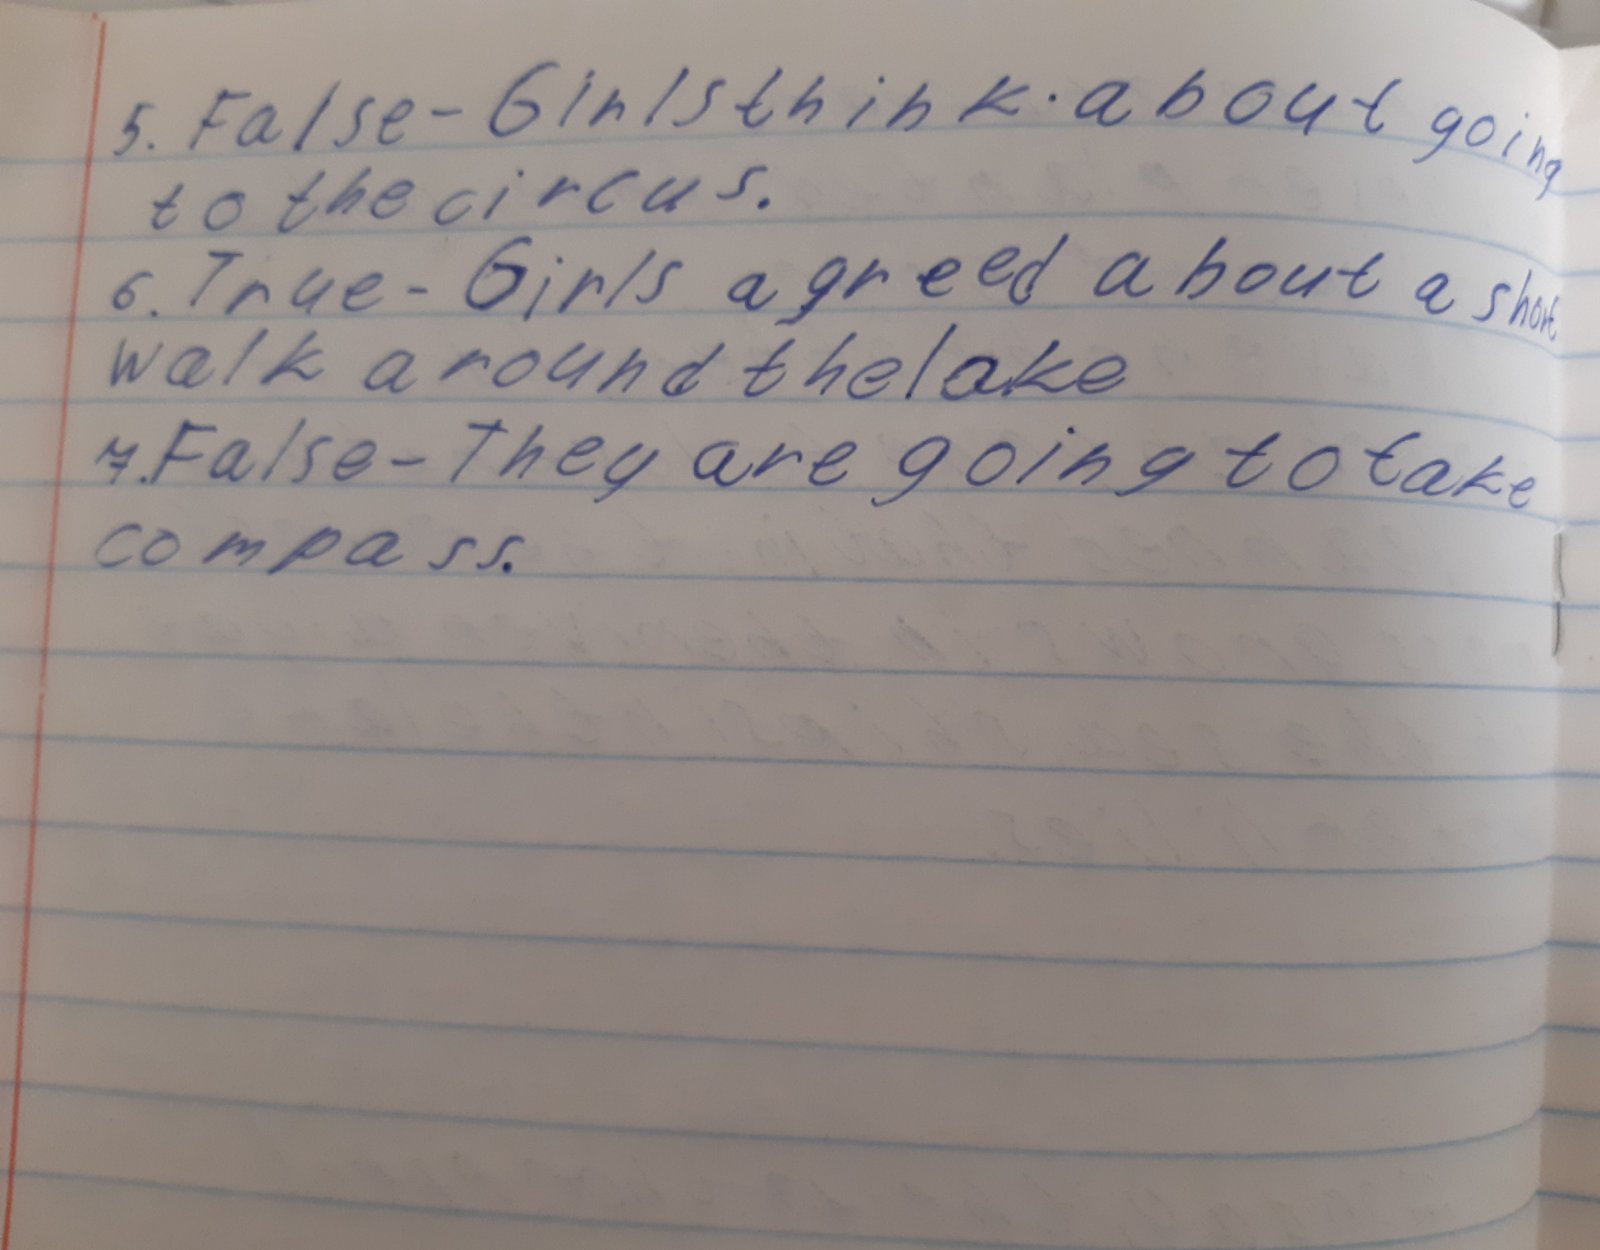 5. False - Girls think about going
to the circus.
6. True - Girls agreed about a short
walk around the lake
7. False - They are going to take
compass.